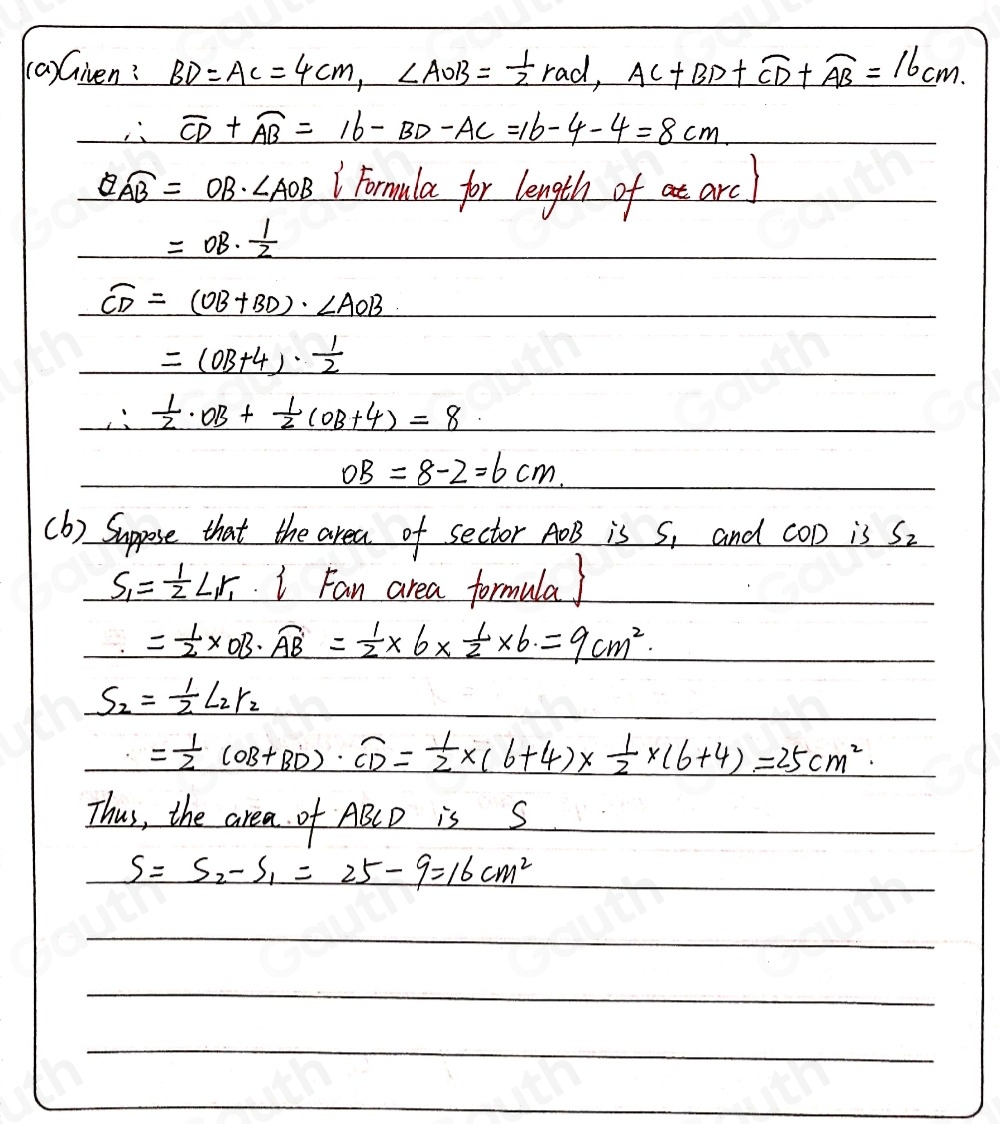 (a) Given: BD = AC = 4cm, ∠AOB = 1/2 rad, AC + BD + C͡D + A͡B = 16cm.
∴ C͡D + A͡B = 16 - BD - AC = 16 - 4 - 4 = 8 cm
A͡B = OB · ∠AOB { Formula for length of arc }
= OB · 1/2
C͡D = (OB + BD) · ∠AOB
= (OB+4) · 1/2
∴ 1/2 · OB + 1/2 (OB+4) = 8
OB = 8 - 2 = 6 cm.
(b) Suppose that the area of sector AOB is S₁ and COD is S₂
S₁ = 1/2 L₁r₁ · { Fan area formula }
= 1/2 × OB · A͡B = 1/2 × 6 × 1/2 × 6 · = 9cm².
S₂ = 1/2 L₂r₂
= 1/2 (OB+BD) · C͡D = 1/2 × (6+4) × 1/2 × (6+4) = 25cm².
Thus, the area of ABCD is S
S = S₂ - S₁ = 25 - 9 = 16 cm²
Gauth